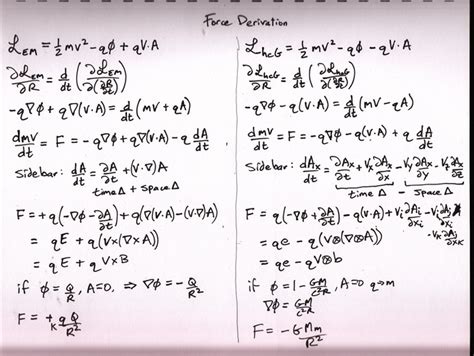 Force Derivation
ℒ_EM = ½ mv² - qϕ + qV·A
∂ℒ_EM/∂R = d/dt (∂ℒ_EM/∂(∂R/∂t))
-q∇ϕ + q∇(V·A) = d/dt (mV + qA)
dmV/dt = F = -q∇ϕ + q∇(V·A) - q dA/dt
Sidebar: dA/dt = ∂A/∂t + (V·∇)A
time Δ + space Δ
F = +q(-∇ϕ - ∂A/∂t) + q(∇(V·A) - (V·∇)A)
= qE + q(V×(∇×A))
= qE + qV×B
if ϕ = Q/R, A=0, ⇒ ∇ϕ = -Q/R²
F = + k qQ/R²
ℒ_hcG = ½ mv² - qϕ - qV·A
∂ℒ_hcG/∂R = d/dt (∂ℒ_hcG/∂(∂R/∂t))
-q∇ϕ - q∇(V·A) = d/dt (mV - qA)
dmV/dt = F = -q∇ϕ - q(V·A) + q dA/dt
Sidebar: dAx/dt = ∂Ax/∂t + Vx ∂Ax/∂x - Vy ∂Ax/∂y - Vz ∂Ax/∂z
time Δ - space Δ
F = q(-∇ϕ + ∂A/∂t) - q(V·A) + Vi ∂Ai/∂xi - Vj ∂Ai/∂xj - Vk ∂Ai/∂xk
= qe - q(V⊗(∇⊗A))
= qe - qV⊗b
if ϕ = 1 - GM/c²R, A=0 q→m
∇ϕ = GM/c²R²
F = -GMm/R²